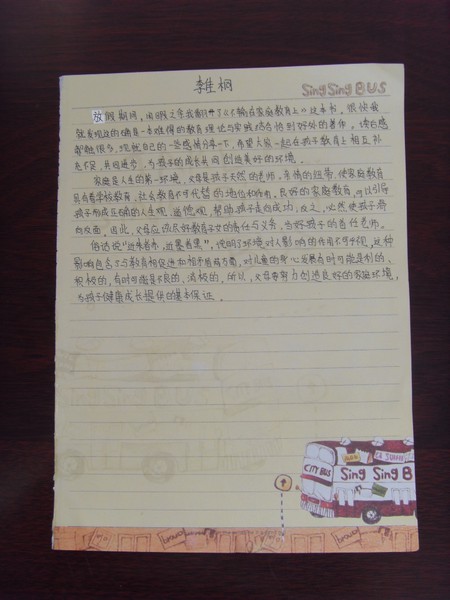 Sing Sing BUS
放假期间,闲暇之余我翻开了《不输在家庭教育上》这本书。很快我
就发现这的确是一本难得的教育理论与实践结合恰到好处的著作,读后感
都触很多,现就自己的一些感悟分享一下,希望大家一起在孩子教育上相互补
充不足,共同进步,为孩子的成长共同创造美好的环境。
家庭是人生的第一环境,父母是孩子天然的老师,亲情的纽带,使家庭教育
具有着学校教育、社会教育不可代替的地位和作用。良好的家庭教育,可以引导
孩子形成正确的人生观、道德观,帮助孩子走向成功;反之,必然使孩子奔
向反面。因此,父母应做好教育子女的责任与义务,当好孩子的首任老师。
俗话说"近朱者赤,近墨者黑",说明了环境对人影响的作用不可小视,这种
影响包含了与教育相促进和相矛盾两方面,对儿童的身心发展有时可能是利的、
积极的,有时可能是不良的、消极的。所以,父母要努力创造良好的家庭环境,
为孩子健康成长提供的基本保证。
CITY BUS
Sing Sing B